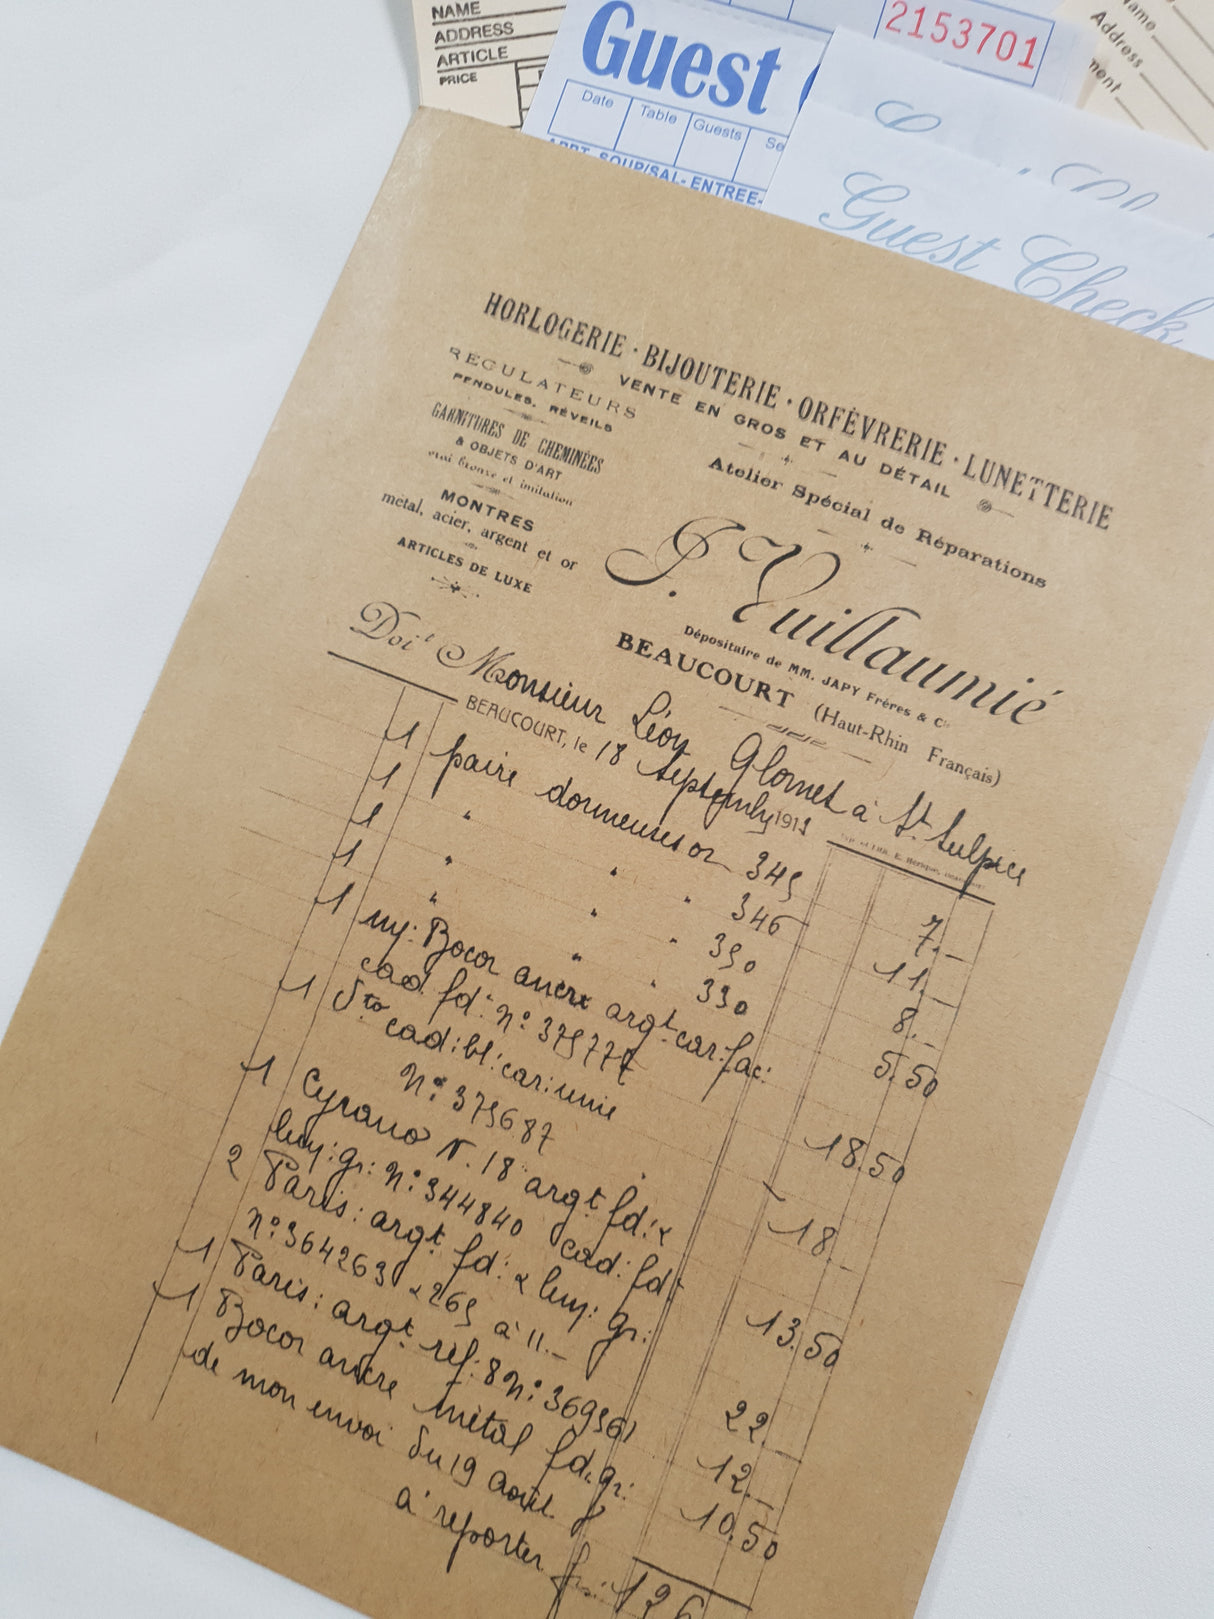 NAME
ADDRESS
ARTICLE
PRICE
Guest
Date Table Guests
APPT-SOUP/SAL-ENTREE-
2153701
Name
Address
Guest Check
HORLOGERIE · BIJOUTERIE · ORFÈVRERIE · LUNETTERIE
VENTE EN GROS ET AU DÉTAIL
Atelier Spécial de Réparations
RÉGULATEURS
PENDULES, RÉVEILS
GARNITURES DE CHEMINÉES
& OBJETS D'ART
vrai bronze et imitation
MONTRES
métal, acier, argent et or
ARTICLES DE LUXE
J. Vuillaumié
Dépositaire de MM. JAPY Frères & Cie
BEAUCOURT (Haut-Rhin Français)
Doit Monsieur Léon Glomet à St. Sulpice
BEAUCOURT, le 18 1919
1 paire dormeuses or 345 7.—
1 " " " 346 11.—
1 " " " 350 8.—
1 " " " 330 5.50
1 Bocor ancre argt car: fac:
cad. fd: n° 375777 18.50
1 dto cad: bl: car: unie
N° 375687 18.—
1 Cyrano N. 18 argt fd: &
luy: gr: n° 344840 cad: fd: 13.50
2 Paris: argt fd: & luy: gr:
n° 364263 & 265 à 11.— 22
1 Paris: argt réf: 8 n° 369561 12.—
1 Bocor ancre métal fd. gr: 10.50
de mon envoi du 19 août
à reporter frs: 126